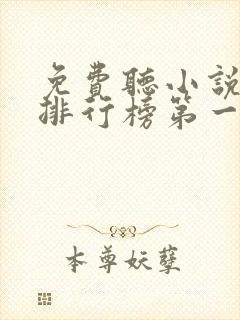 免費聽小說
排行榜第一
本尊妖孽